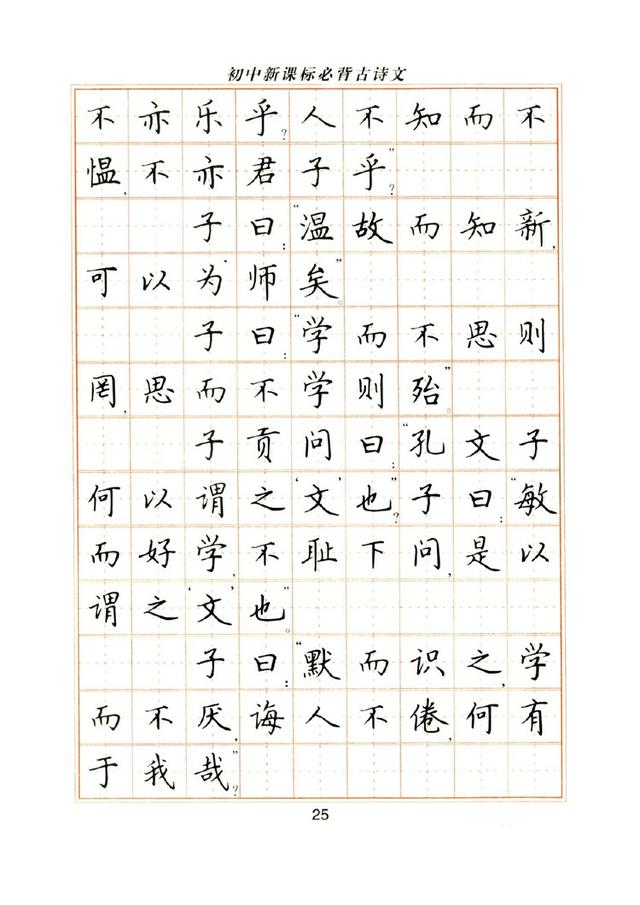 初中新课标必背古诗文
不亦乐乎？人不知而不
愠，不亦君子乎”？
子曰：“温故而知新，
可以为师矣”。
子曰：“学而不思则
罔，思而不学则殆”。
子贡问曰：“孔文子
何以谓之‘文’也”？子曰：“敏
而好学，不耻下问，是以
谓之‘文’也”。
子曰：“默而识之，学
而不厌，诲人不倦，何有
于我哉”？
25